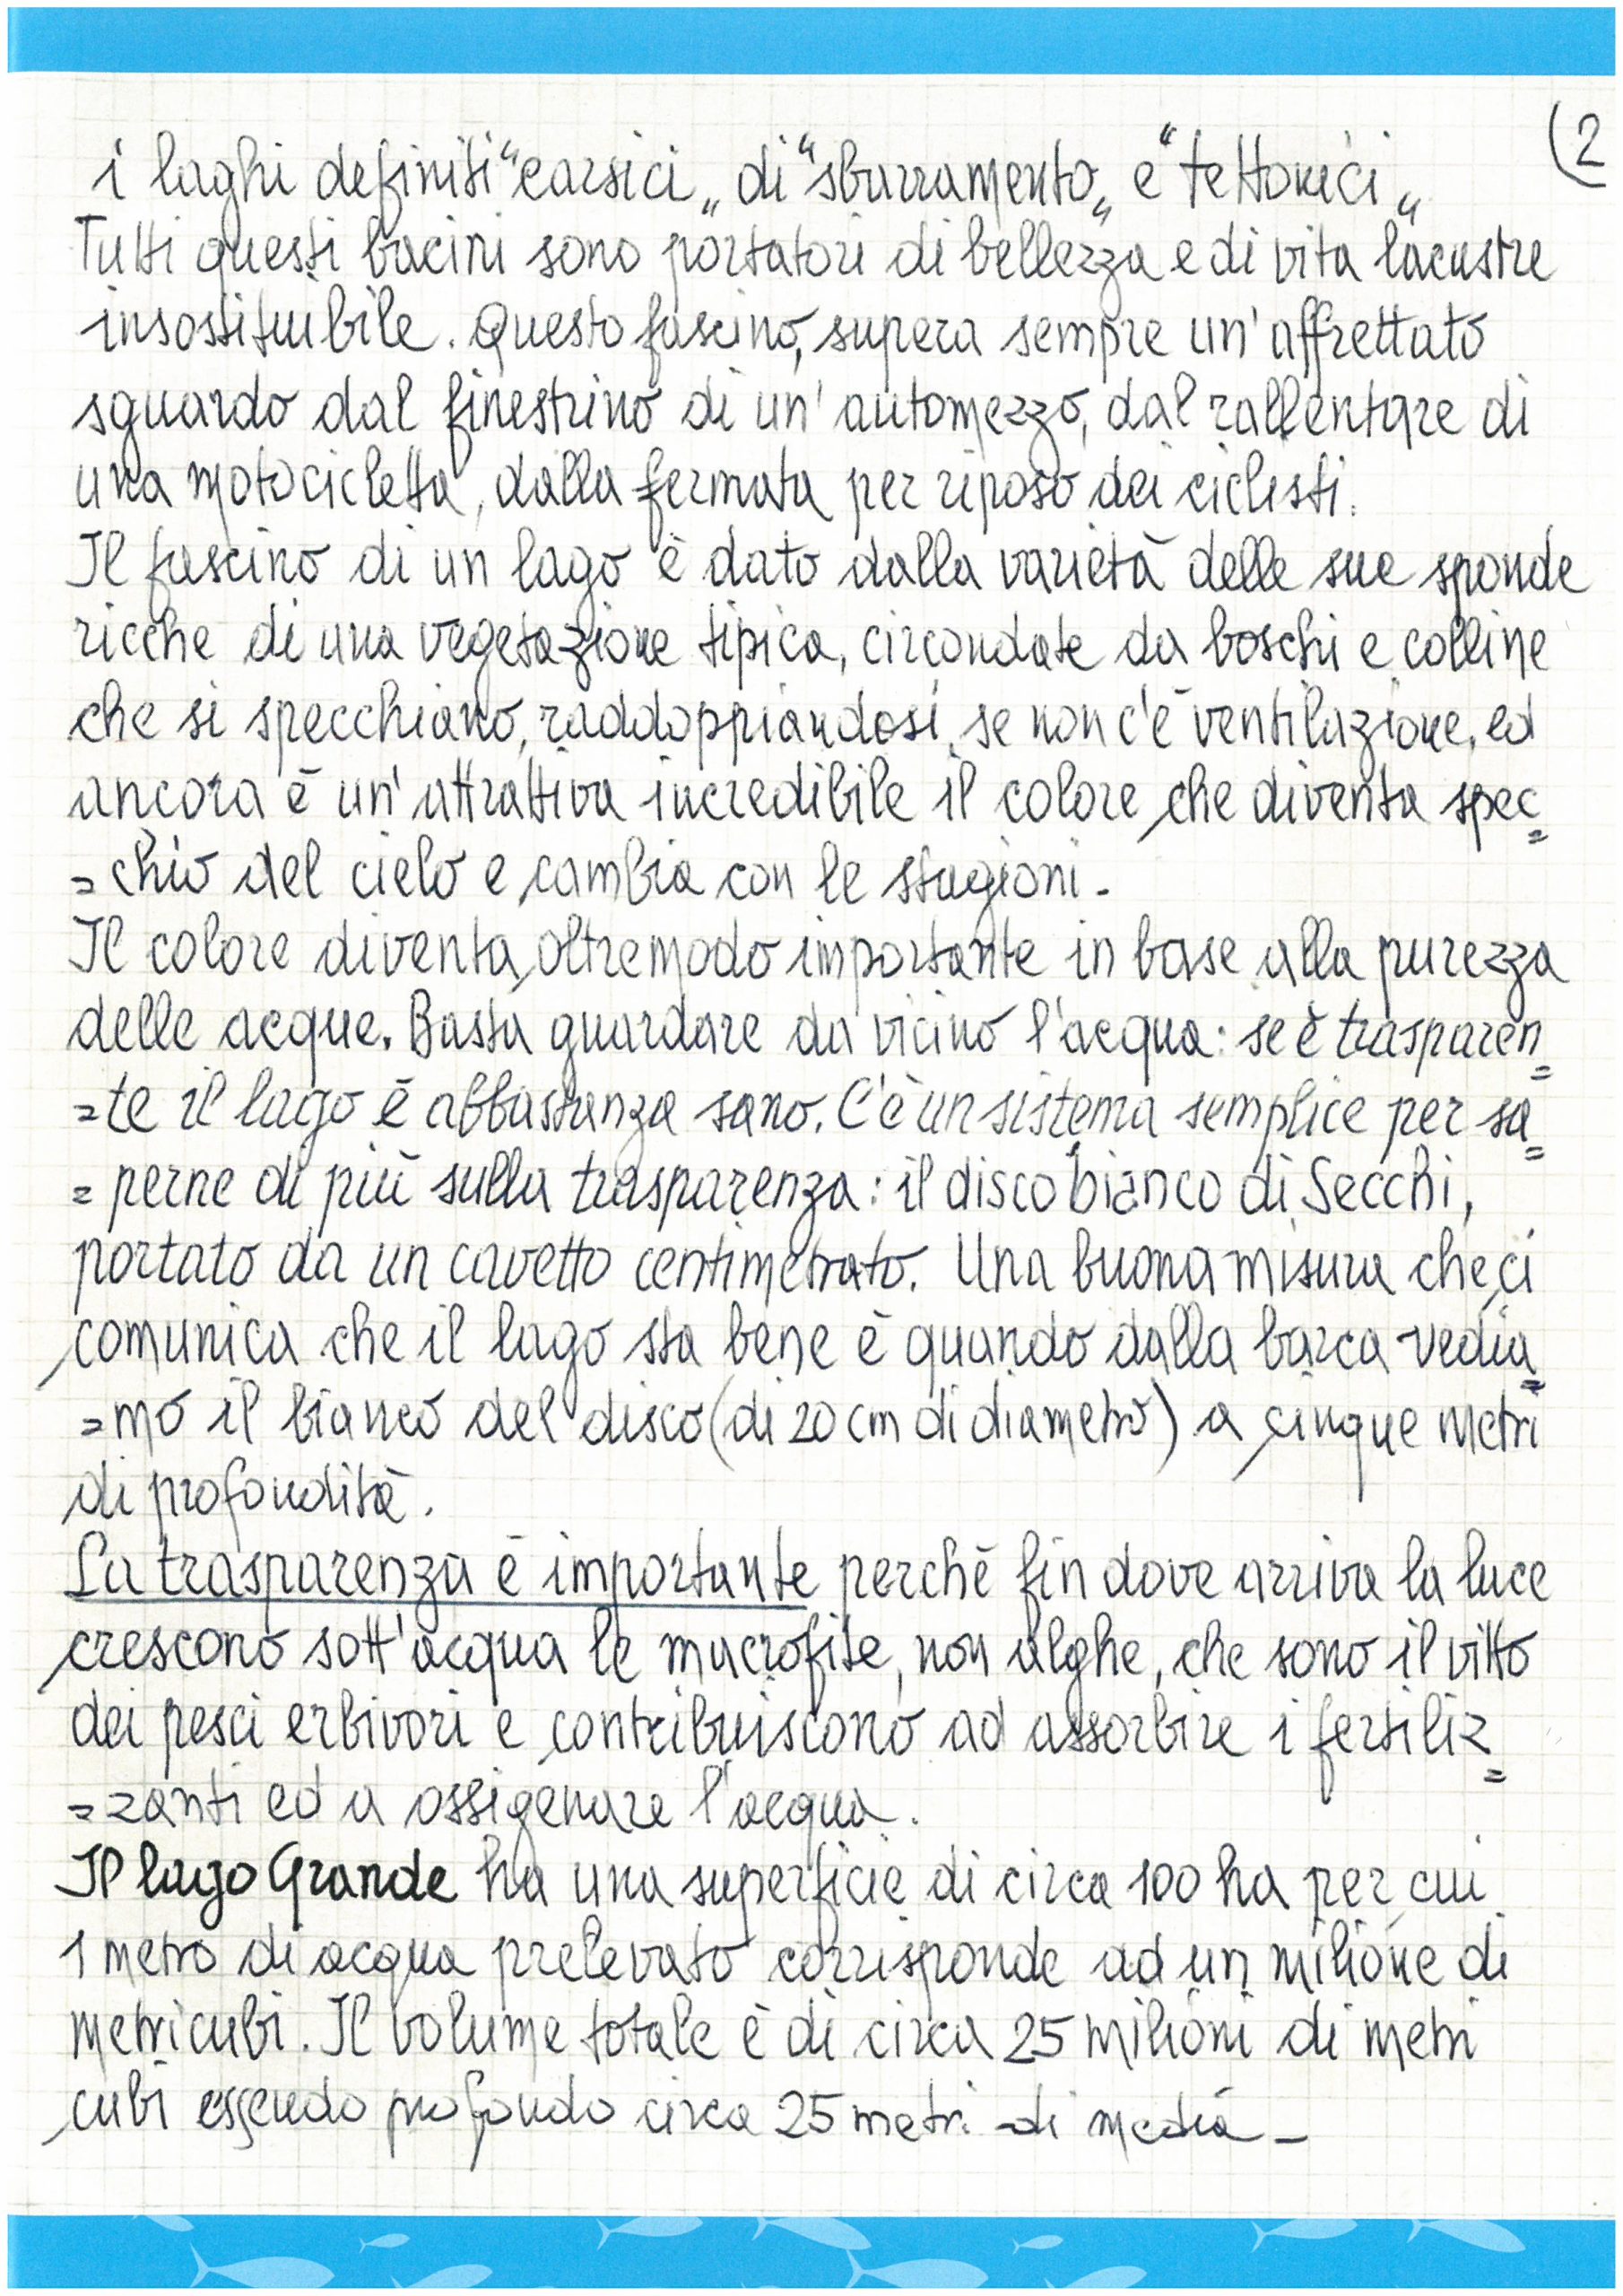 (2
i laghi definiti “carsici„ di “sbarramento„ e “tettonici„
Tutti questi bacini sono portatori di bellezza e di vita lacustre
insostituibile. Questo fascino, supera sempre un'affrettato
sguardo dal finestrino di un'automezzo, dal rallentare di
una motocicletta, dalla fermata per riposo dei ciclisti.
Il fascino di un lago è dato dalla varietà delle sue sponde
ricche di una vegetazione tipica, circondate da boschi e colline
che si specchiano, raddoppiandosi, se non c'è ventilazione, ed
ancora è un'attrattiva incredibile il colore che diventa spec=
=chio del cielo e cambia con le stagioni -
Il colore diventa oltremodo importante in base alla purezza
delle acque. Basta guardare da vicino l'acqua: se è trasparen=
=te il lago è abbastanza sano. C'è un sistema semplice per sa=
=perne di più sulla trasparenza: il disco bianco di Secchi,
portato da un cavetto centimetrato. Una buona misura che ci
comunica che il lago sta bene è quando dalla barca vedia=
=mo il bianco del disco (di 20 cm di diametro) a cinque metri
di profondità.
La trasparenza è importante perchè fin dove arriva la luce
crescono sott'acqua le macrofite, non alghe, che sono il vitto
dei pesci erbivori e contribuiscono ad assorbire i fertiliz=
=zanti ed a ossigenare l'acqua.
Il lago Grande ha una superficie di circa 100 ha per cui
1 metro di acqua prelevato corrisponde ad un milione di
metri cubi. Il volume totale è di circa 25 milioni di metri
cubi essendo profondo circa 25 metri di media -